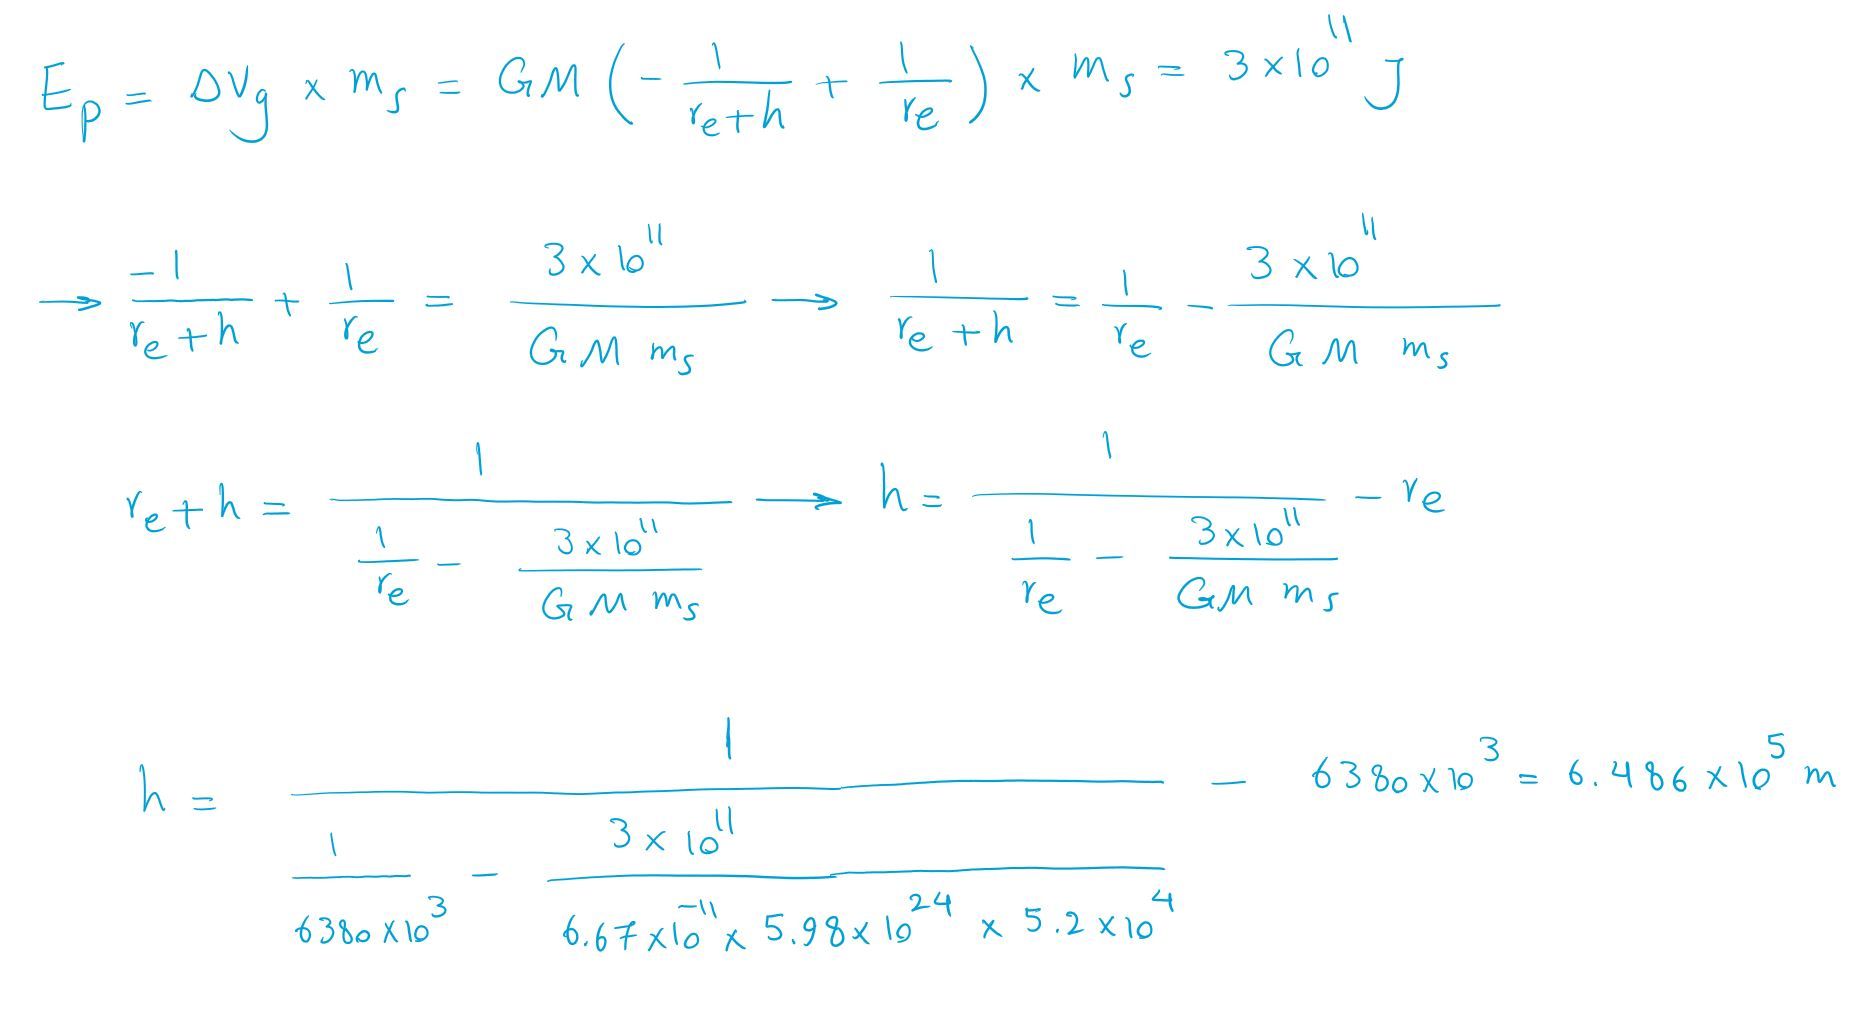 E_p = ΔV_g × m_s = GM ( - 1/(r_e+h) + 1/r_e ) × m_s = 3×10^11 J
→ -1/(r_e+h) + 1/r_e = 3×10^11/(GM m_s) → 1/(r_e+h) = 1/r_e - 3×10^11/(GM m_s)
r_e+h = 1/(1/r_e - 3×10^11/(GM m_s)) → h = 1/(1/r_e - 3×10^11/(GM m_s)) - r_e
h = 1/(1/(6380×10^3) - 3×10^11/(6.67×10^-11 × 5.98×10^24 × 5.2×10^4)) - 6380×10^3 = 6.486×10^5 m